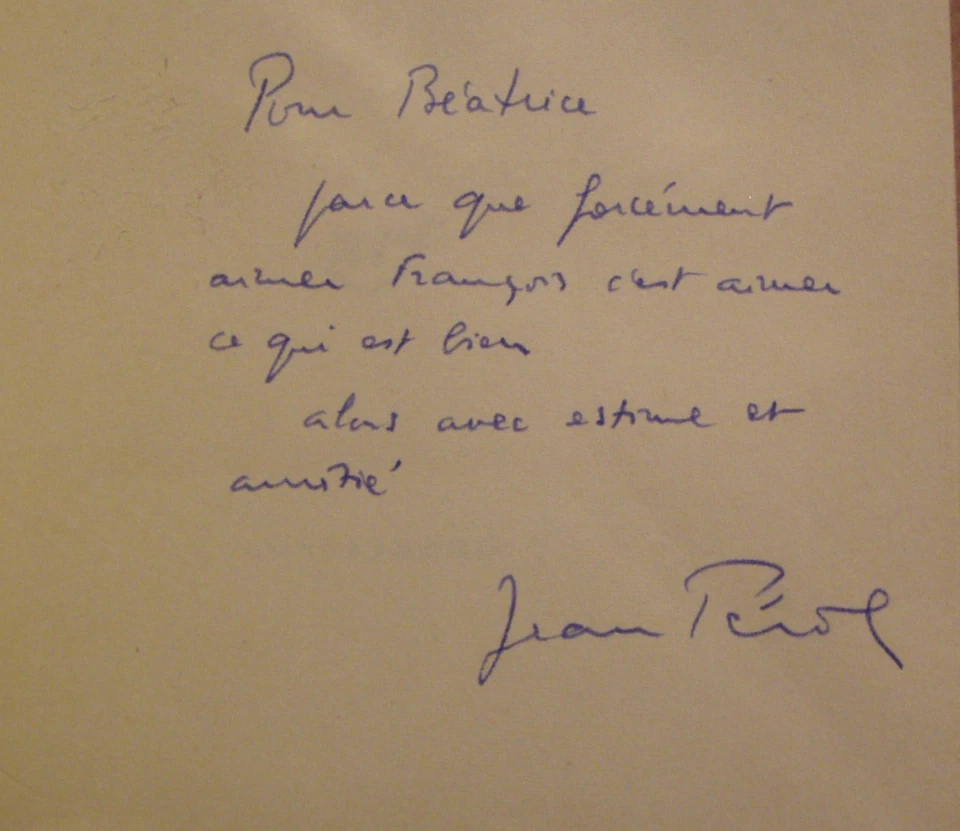 Pour Béatrice
parce que forcément
aimer François c'est aimer
ce qui est bien
alors avec estime et
amitié
Jean Pérol